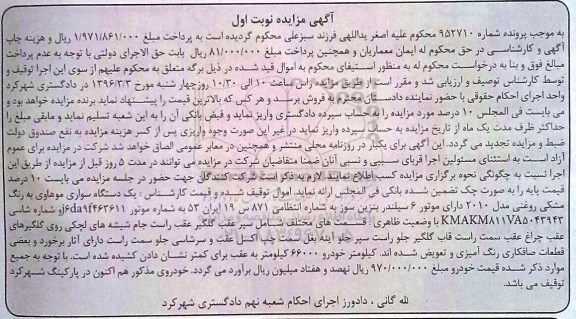 آگهی مزایده نوبت اول
به موجب پرونده شماره ۹۵۲۷۱۰ محکوم علیه اصغر یداللهی فرزند سبزعلی محکوم گردیده است به پرداخت مبلغ ۱/۹۷۱/۸۶۱/۰۰۰ ریال و هزینه چاپ
آگهی و کارشناسی در حق محکوم له ایمان معماریان و همچنین پرداخت مبلغ ۸۱/۰۰۰/۰۰۰ ریال بابت حق الاجرای دولتی با توجه به عدم پرداخت
مبالغ فوق و بنا به درخواست محکوم له به منظور استیفای محکوم به اموال قید شده در ذیل برگه متعلق به محکوم علیهم از سوی این اجرا توقیف و
توسط کارشناس توصیف و ارزیابی شد و مقرر است از طریق مزایده راس ساعت ۱۰ الی ۱۰/۳۰ روز چهار شنبه مورخ ۱۳۹۶/۳/۳ در دادگستری شهرکرد
واحد اجرای احکام حقوقی با حضور نماینده دادستان محترم به فروش برسد و هر کس که بالاترین قیمت را پیشنهاد نماید برنده مزایده خواهد بود و
می بایست فی المجلس ۱۰ درصد مورد مزایده را به حساب سپرده دادگستری واریز نماید و فیش بانکی آن را به این شعبه تسلیم نماید و مابقی مبلغ را
حداکثر ظرف مدت یک ماه از تاریخ مزایده به حساب سپرده واریز نماید در غیر این صورت وجوه واریزی پس از کسر هزینه مزایده به نفع صندوق دولت
ضبط و مزایده تجدید می گردد. این آگهی برای یکبار در روزنامه محلی منتشر و همچنین در معابر عمومی الصاق خواهد شد شرکت در مزایده برای عموم
آزاد است به استثنای مسئولین اجرا اقربای سببی و نسبی آنان ضمنا متقاضیان شرکت در مزایده می توانند در مدت ۵ روز قبل از مزایده از طریق این
اجرا نسبت به چگونگی نحوه برگزاری مزایده کسب اطلاع نمایند. لازم به ذکر است شرکت کنندگان جهت حضور در جلسه مزایده می بایست ۱۰ درصد
قیمت پایه را به صورت چک تضمین شده بانکی فی المجلس ارائه نماید. اموال توقیف شده و قیمت کارشناس: یک دستگاه سواری موهاوی به رنگ
مشکی روغنی مدل ۲۰۱۰ دارای موتور ۶ سیلندر بنزین سوز به شماره انتظامی ۸۷۱ س ۱۹ ایران ۵۳ به شماره موتور g6da۹f۴۶۳۶۱۱ و شماره شاسی
KMAKM۸۱۱VA۵۰۴۳۹۴۳ با وضعیت ظاهری: قسمت های مختلف شامل سپر عقب گلگیر عقب راست جام شیشه های لچکی روی گلگیرهای
عقب چراغ عقب سمت راست قاب گلگیر جلو راست سپر جلو اینه بغل سمت چپ اکسل عقب و سرشاسی جلو سمت راست دارای آثار برخورد و بعضی
قطعات صافکاری رنگ آمیزی و تعویض شده اند. کیلومتر خودرو ۶۶۰۰۰ کیلومتر به عقب برای کمتر نشان دادن کشیده شده است. با توجه به جمیع
موارد ذکر شده قیمت خودرو مبلغ ۹۷۰/۰۰۰/۰۰۰ ریال نهصد و هفتاد میلیون ریال برآورد می گردد. خودروی مذکور هم اکنون در پارکینگ شهرکرد
توقیف می باشد.
لله گانی، دادورز اجرای احکام شعبه نهم دادگستری شهرکرد